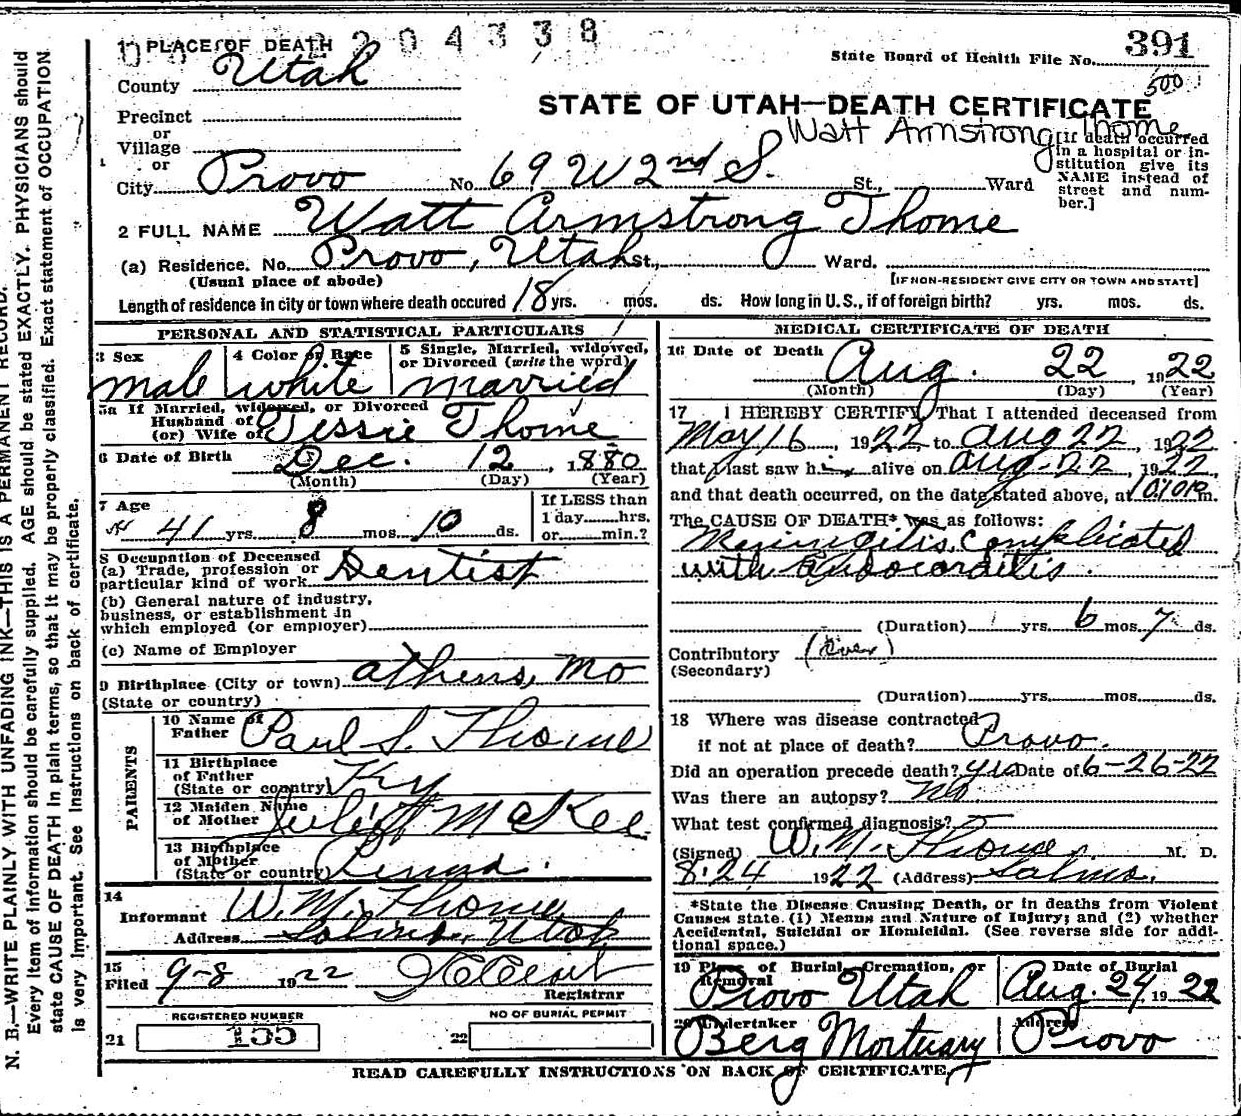 N. B.—WRITE PLAINLY WITH UNFADING INK—THIS IS A PERMANENT RECORD.
Every item of information should be carefully supplied. AGE should be stated EXACTLY. PHYSICIANS should
state CAUSE OF DEATH in plain terms, so that it may be properly classified. Exact statement of OCCUPATION
is very important. See instructions on back of certificate.
204338
1 PLACE OF DEATH
State Board of Health File No. 391
500
County Utah
STATE OF UTAH—DEATH CERTIFICATE
Precinct
or
Village
or
Watt Armstrong Thome
City Provo No. 69 W 2nd S. St., Ward
[if death occurred
in a hospital or in-
stitution give its
NAME instead of
street and num-
ber.]
2 FULL NAME Watt Armstrong Thome
(a) Residence. No. Provo, Utah St., Ward.
(Usual place of abode) [IF NON-RESIDENT GIVE CITY OR TOWN AND STATE]
Length of residence in city or town where death occured 18 yrs. mos. ds. How long in U. S., if of foreign birth? yrs. mos. ds.
PERSONAL AND STATISTICAL PARTICULARS
3 Sex male
4 Color or Race white
5 Single, Married, widowed,
or Divorced (write the word)
married
5a If Married, widowed, or Divorced
Husband of
(or) Wife of Tessie Thome
6 Date of Birth Dec. 12, 1880
(Month) (Day) (Year)
7 Age 41 yrs. 8 mos. 10 ds.
If LESS than
1 day hrs.
or min.?
8 Occupation of Deceased
(a) Trade, profession or
particular kind of work Dentist
(b) General nature of industry,
business, or establishment in
which employed (or employer)
(c) Name of Employer
9 Birthplace (City or town) Athens, Mo
(State or country)
PARENTS
10 Name of
Father Paul S. Thome
11 Birthplace
of Father
(State or country) Ky
12 Maiden Name
of Mother McKee
13 Birthplace
of Mother
(State or country) Penna.
14
Informant W. M. Thome
Address Salina, Utah
15
Filed 9-8 1922
Registrar
REGISTERED NUMBER
21 155
NO OF BURIAL PERMIT
22
MEDICAL CERTIFICATE OF DEATH
16 Date of Death Aug. 22, 1922
(Month) (Day) (Year)
17 I HEREBY CERTIFY, That I attended deceased from
May 16, 1922 to Aug 22, 1922
that I last saw him alive on Aug-22, 1922
and that death occurred, on the date stated above, at 10:10 P m.
The CAUSE OF DEATH* was as follows:
Meningitis, Complicated
with Endocarditis.
(Duration) yrs. 6 mos. 7 ds.
Contributory
(Secondary)
(Duration) yrs. mos. ds.
18 Where was disease contracted
if not at place of death? Provo.
Did an operation precede death? yes Date of 6-26-22
Was there an autopsy? No
What test confirmed diagnosis?
(Signed) W. M. Thome, M. D.
8-24 1922 (Address) Salina.
*State the Disease Causing Death, or in deaths from Violent
Causes state (1) Means and Nature of Injury; and (2) whether
Accidental, Suicidal or Homicidal. (See reverse side for addi-
tional space.)
19 Place of Burial, Cremation, or
Removal
Provo Utah
Date of Burial
Aug. 24, 1922
20 Undertaker
Berg Mortuary
Address
Provo
READ CAREFULLY INSTRUCTIONS ON BACK OF CERTIFICATE.